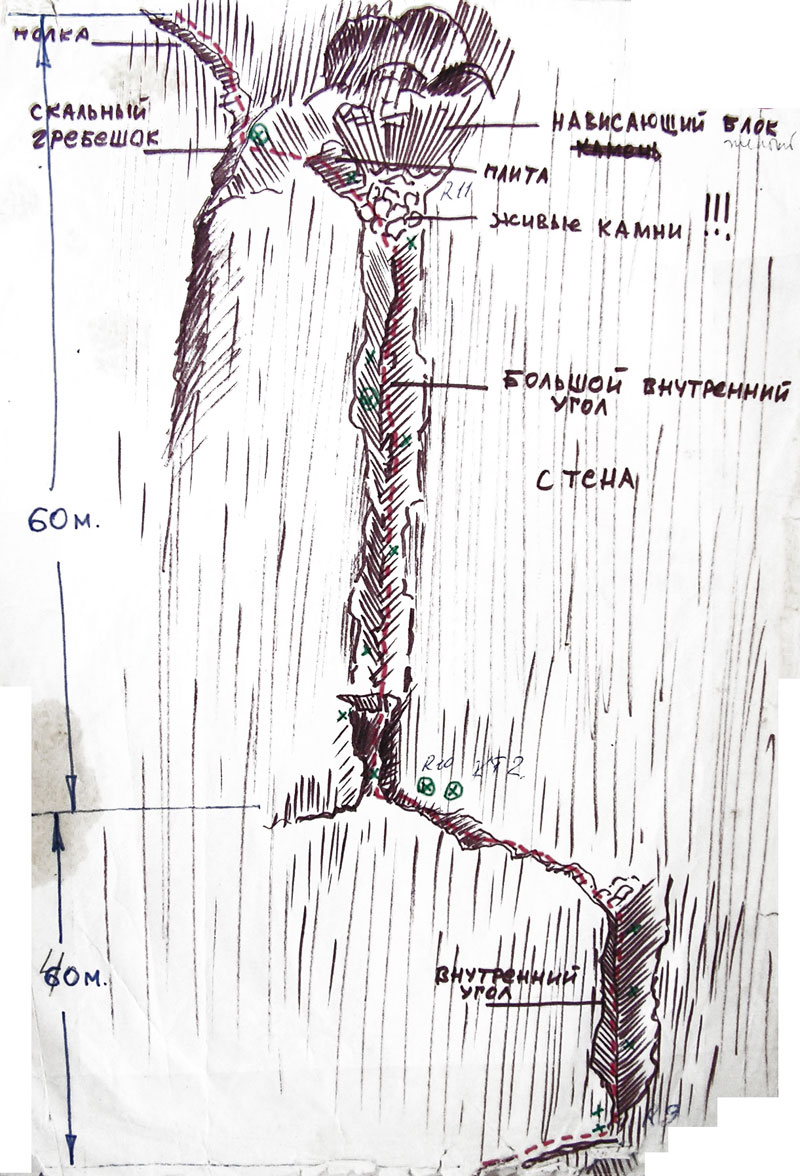 ПОЛКА
СКАЛЬНЫЙ
ГРЕБЕШОК
НАВИСАЮЩИЙ БЛОК
ПЛИТА
R11
ЖИВЫЕ КАМНИ !!!
БОЛЬШОЙ ВНУТРЕННИЙ
УГОЛ
СТЕНА
60М.
R10
60М.
ВНУТРЕННИЙ
УГОЛ